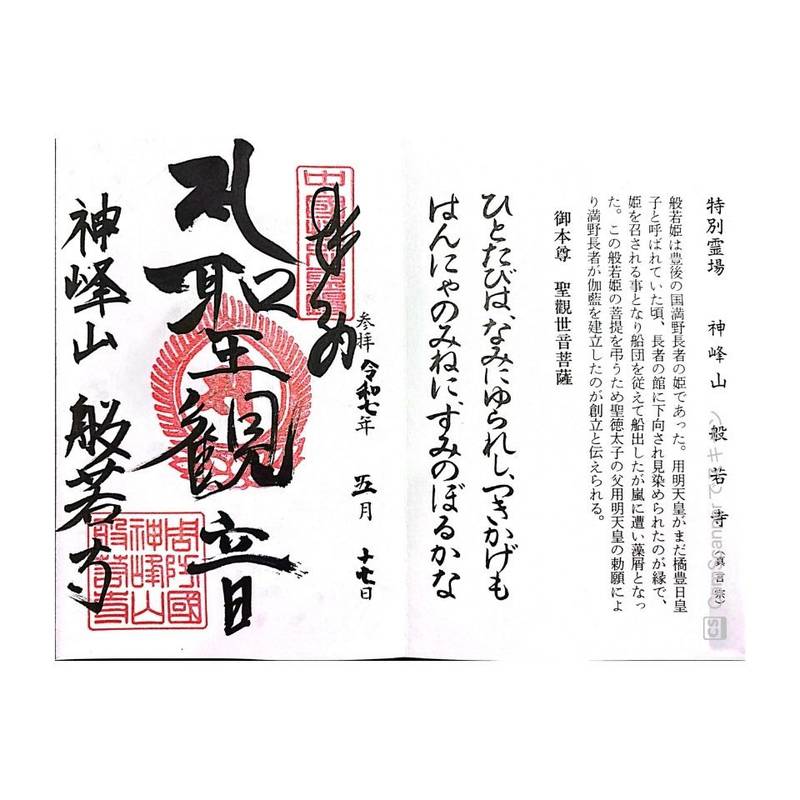 特別霊場　神峰山　般若寺（真言宗）
般若姫は豊後の国満野長者の姫であった。用明天皇がまだ橘豊日皇
子と呼ばれていた頃、長者の館に下向され見染められたのが縁で、
姫を召される事となり船団を従えて船出したが嵐に遭い藻屑となっ
た。この般若姫の菩提を弔うため聖徳太子の父用明天皇の勅願によ
り満野長者が伽藍を建立したのが創立と伝えられる。
御本尊　聖觀世音菩薩
ひとたびは、なみにゆられし、つきかげも
はんにゃのみねに、すみのぼるかな
参拝 令和七年 五月 十七日
奉納
聖觀音
神峰山 般若寺
周防國
神峰山
般若寺
CS CamScanner でスキャン